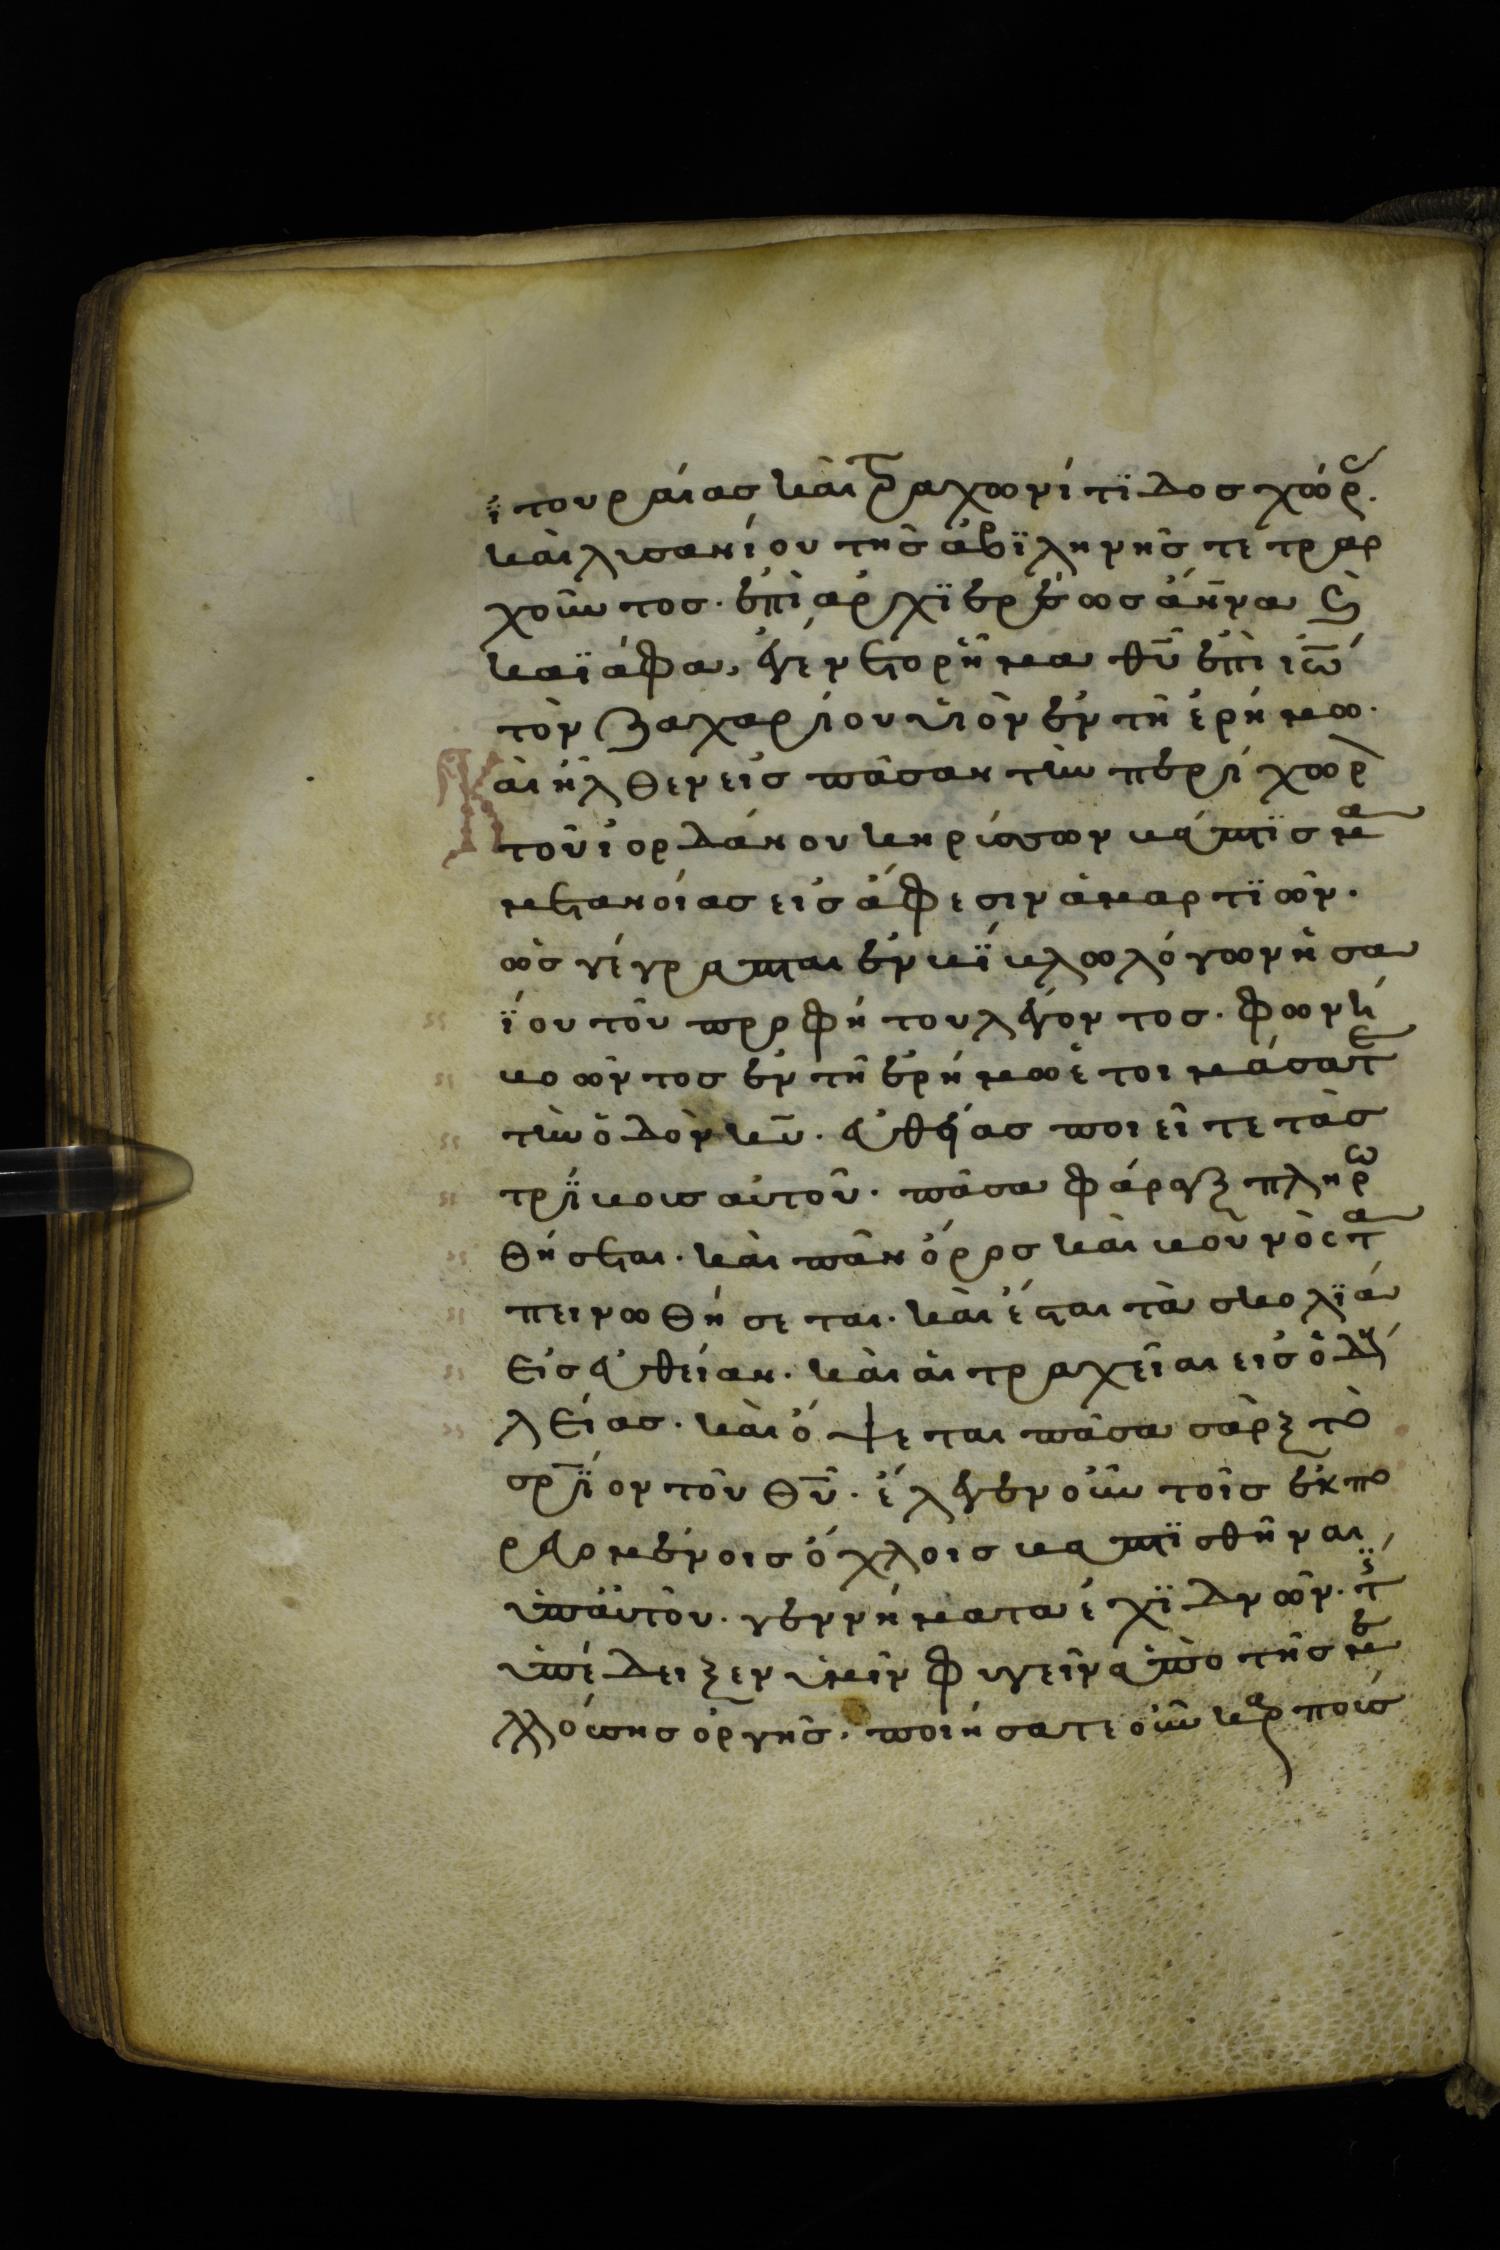 ϊτουραίας καὶ τραχωνίτϊδος χώρ.
καὶ λισανίου τῆς ἀβϊληνῆς τετραρ
χοῦντος. ἐπὶ ἀρχϊερέως ἄννα ϗ
καϊάφα, ἐγένετο ῥῆμα θῡ ἐπὶ ἰω̄
τὸν ζαχαρίου υἱὸν ἐν τῆ ἐρήμω.
Καὶ ἦλθεν εἰς πᾶσαν τὴν περίχωρ
τοῦ ἰορδάνου κηρύσσων βάπτϊσμα
μετανοίας εἰς ἄφεσιν ἁμαρτϊῶν.
ὡς γέγραπται ἐν βϊβλω λόγων ἠσα
ΐου τοῦ προφήτου λέγοντος. φωνὴ
βοῶντος ἐν τῆ ἐρήμω ἑτοιμάσατε
τὴν ὁδὸν κῡ. εὐθείας ποιεῖτε τὰς
τρίβους αὐτοῦ. πᾶσα φάραγξ πληρω
θήσεται. καὶ πᾶν ὄρος καὶ βουνὸς τα
πεινωθήσεται. καὶ ἔσται τὰ σκολϊά
εἰς εὐθείαν. καὶ αἱ τραχεῖαι εἰς ὁδοὺς
λείας. καὶ ὄψεται πᾶσα σὰρξ τὸ
σρ̄ϊον τοῦ θῡ. ἔλεγεν οὖν τοῖς ἐκπο
ρευομένοις ὄχλοις βαπτϊσθῆναι
ὑπ αὐτοῦ. γεννήματα ἐχϊδνῶν. τίς
ὑπέδειξεν ὑμῖν φυγεῖν ἀπὸ τῆς με
λλούσης ὀργῆς. ποιήσατε οὖν καρποὺς